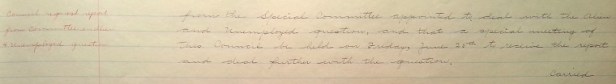 Council request report
from Committee on
Unemployed question
from the Special Committee appointed to deal with the
and Unemployed question, and that a special meeting of
this Council be held on Friday, June 28th to receive the report
and deal further with the question.
Carried